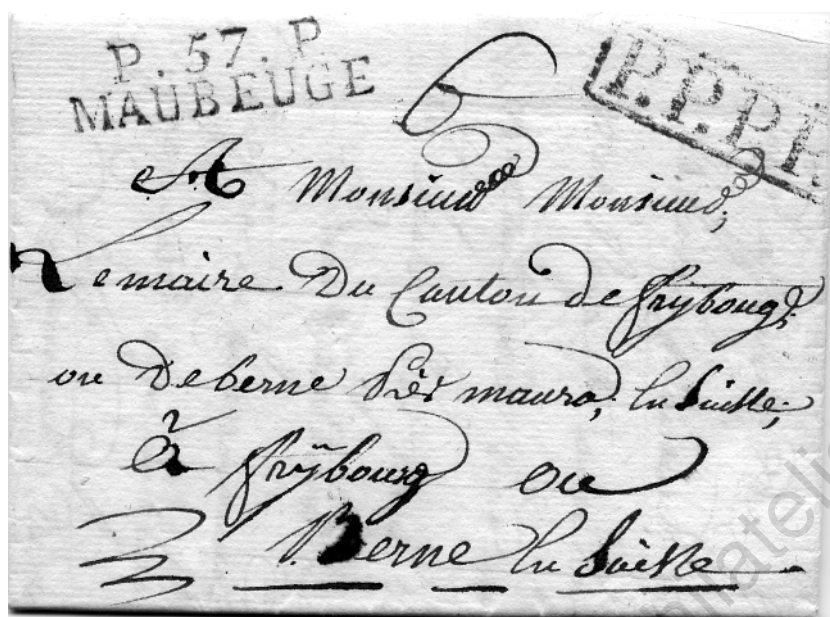 P. 57. P.
MAUBEUGE
P.P.P.P.
A Monsieur Monsieur,
Lemaire Du Canton de frÿbourg,
ou De berne près maura, En Suisse,
à frÿbourg ou
Berne En Suisse